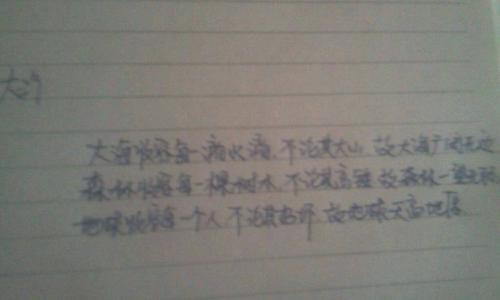 大海收容每一滴水滴,不论其大小,故大海广阔无边
森林收容每一棵树木,不论其高矮,故森林一望无际
地球收容每一个人,不论其好坏,故地球天高地厚